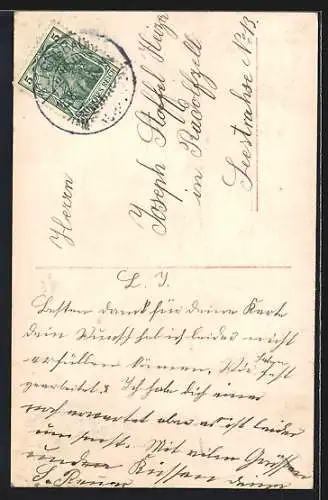 Herrn
Joseph Stoffel Heizer
in Radolfzell
Seestrahse No 13.
L. J.
Besten dank für deine Karte
dein Wunsch hab ich leider nicht
erfüllen können, Wir haben fest
gearbeitet. Ich habe dich immer
noch erwartet aber es ist leider
umsonst. Mit vielen Grüßen
und Küssen deine
5
5